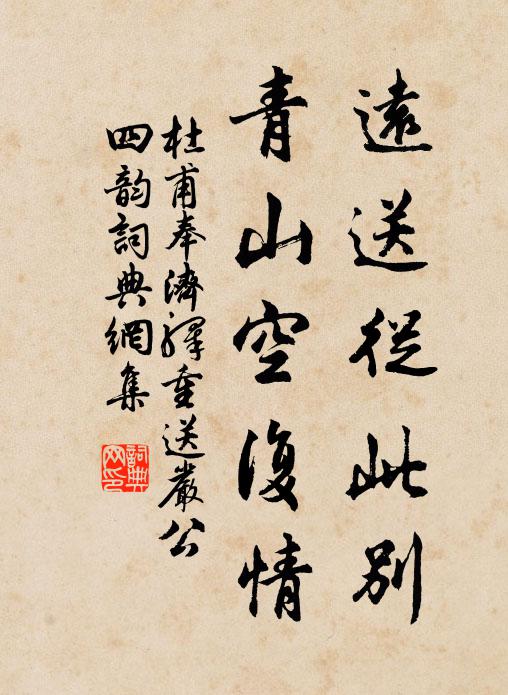 遠送從此別
青山空復情
杜甫奉濟驛重送嚴公
四韵詞典網集
詞典网印